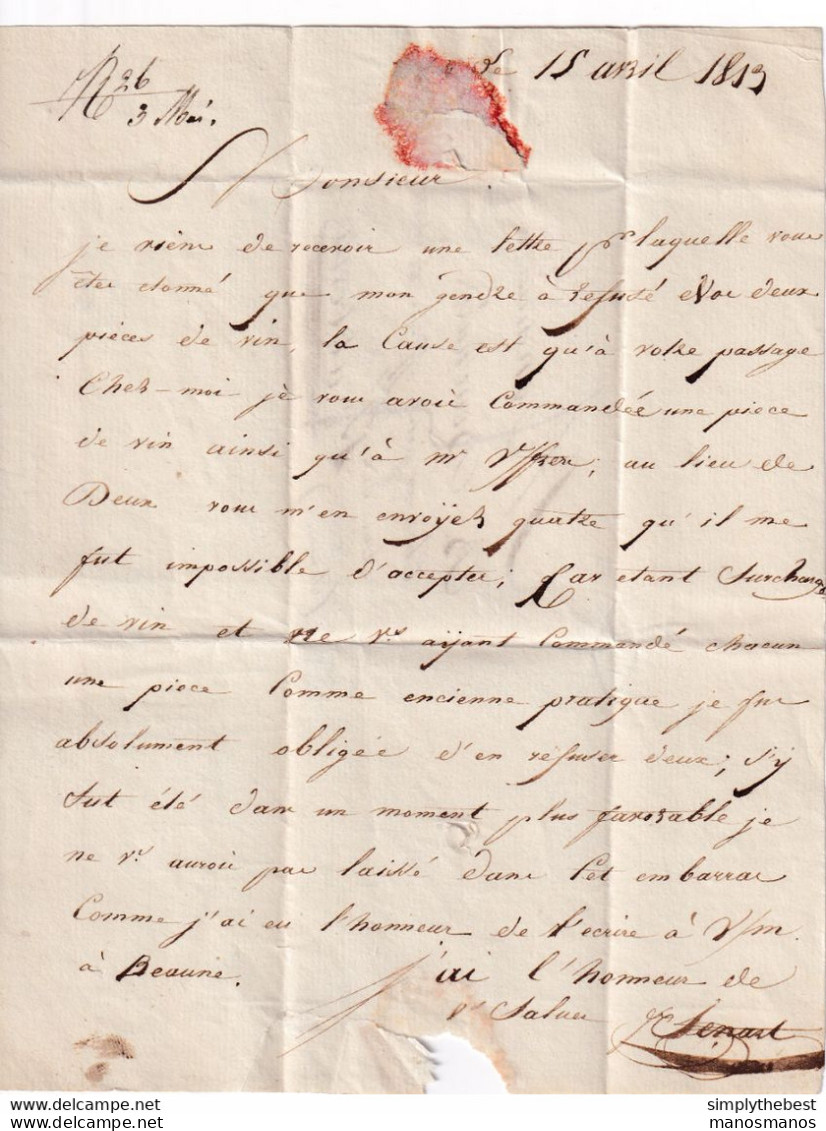 Le 15 avril 1813
R 26
3 Mai.
Monsieur.
je viens de recevoir une lettre pr laquelle vous
êtes etonné que mon gendre à refusé deux
pièces de vin, la Cause est qu'à votre passage
Chez-moi je vous avois Commandée une piece
de vin ainsi qu'à mr au lieu de
Deux vous m'en envoÿez quatre qu'il me
fut impossible d'accepter; Car etant Surchargé
de vin et ne vs aÿant Commandé chacun
une piece Comme encienne pratique je fus
absolument obligée d'en refuser deux; s'y
fut été dans un moment plus favorable je
ne vs aurois pas laissé dans Cet embarras
Comme j'ai eu l'honneur de l'ecrire à V/m.
à Beaune. J'ai l'honneur de
vs Saluer Senart
simplythebest
manosmanos